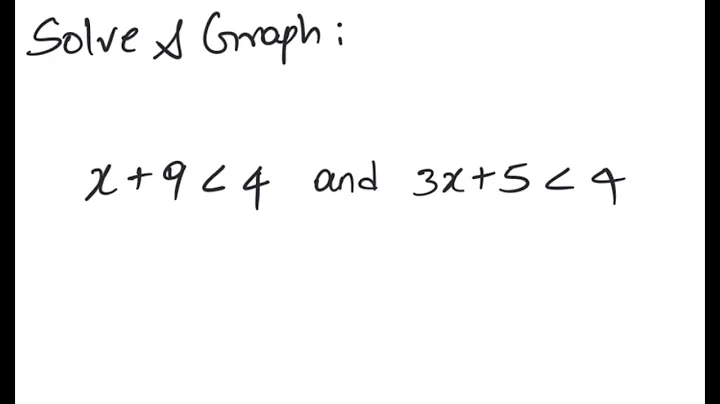 Solve & Graph:
x+9<4 and 3x+5<4